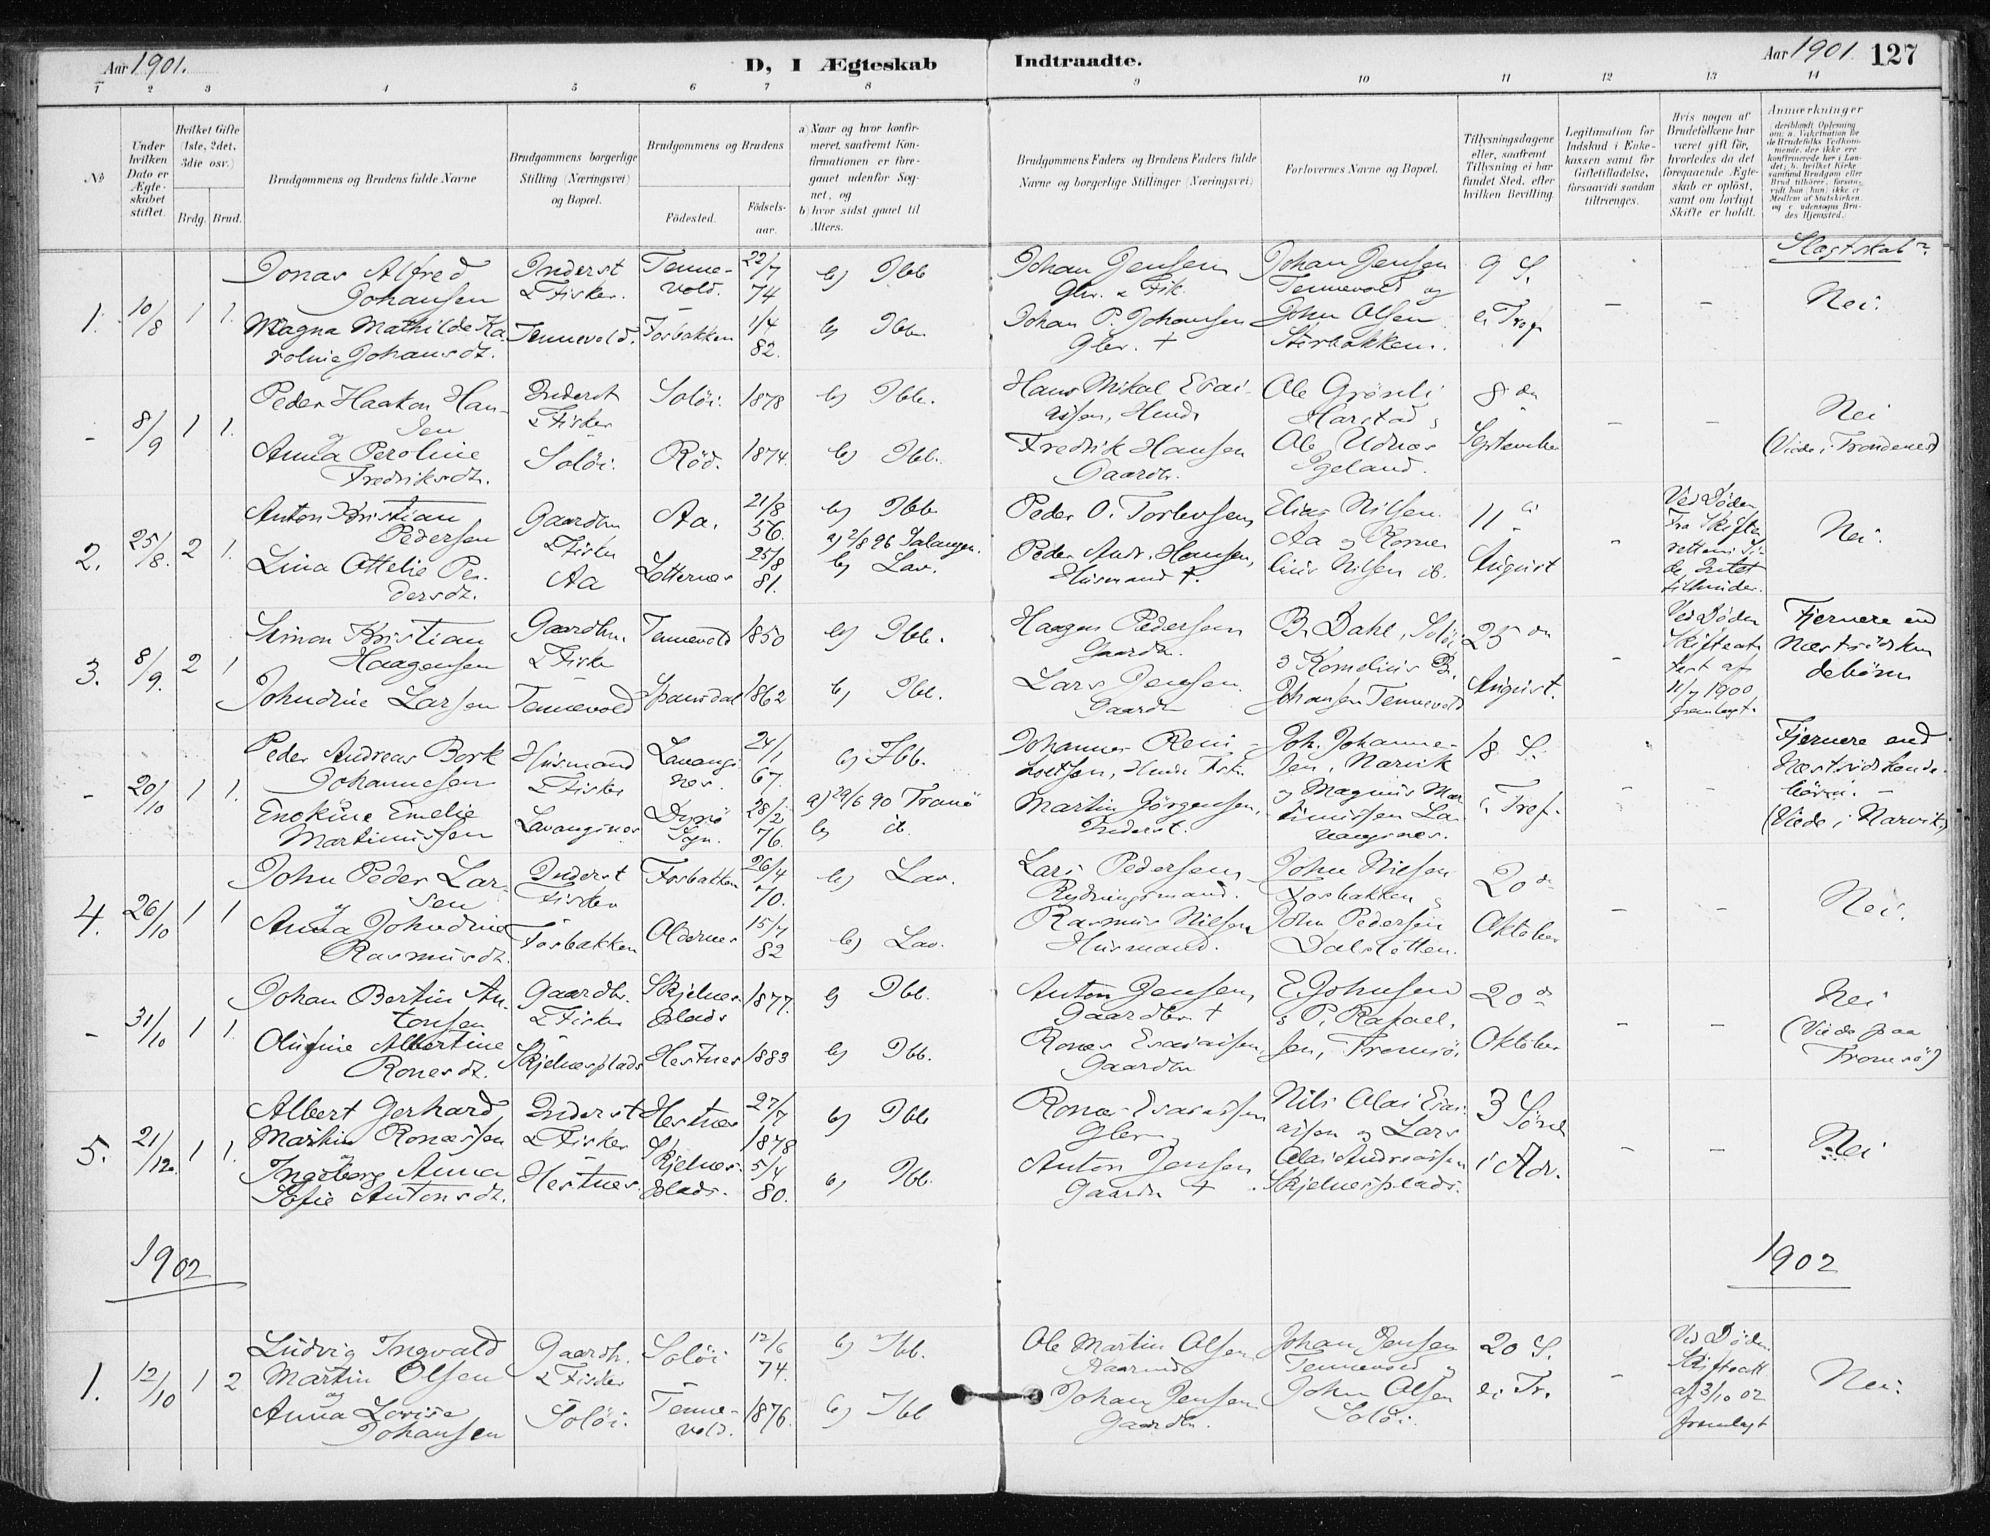 Aar 1901.
D, I Ægteskab Indtraadte.
Aar 1901. 127
1 2 3 4 5 6 7 8 9 10 11 12 13 14
No
Under hvilken Dato er Ægteskabet stiftet.
Hvilket Gifte (1ste, 2det, 3die osv.)
Brdg. Brud.
Brudgommens og Brudens fulde Navne
Brudgommens borgerlige Stilling (Næringsvei) og Bopæl.
Brudgommens og Brudens
Födested.
Födselsaar.
a) Naar og hvor konfirmeret, saafremt Konfirmationen er foregaaet udenfor Sognet, og
b) hvor sidst gaaet til Alters.
Brudgommens Faders og Brudens Faders fulde Navne og borgerlige Stillinger (Næringsvei)
Forlovernes Navne og Bopæl.
Tillysningsdagene eller, saafremt Tillysning ei har fundet Sted, efter hvilken Bevilling.
Legitimation for Indskud i Enkekassen samt for Giftetilladelse, forsaavidt saadan tiltrænges.
Hvis nogen af Brudefolkene har været gift för, hvorledes da det foregaaende Ægteskab er oplöst, samt om lovligt Skifte er holdt.
Anmærkninger
Slægtskab?
1. 10/8 1 1.
Jonas Alfred
Johansen
Magna Mathilde Ka-
roline Johansdt.
Inderst
& Fisker.
Tennevold.
Tenne-
vold.
Fosbakken
22/7
74
1/4
82.
b) Ibb
b) Ibb.
Johan Jensen
Gbr. & Fisk.
Johan P. Johansen
Gbr. †
Johan Jensen
Tennevold og
John Olsen
9 S.
e. Tref
-
-
Nei.
- 8/9 1 1.
Peder Haakon Han-
sen
og
Anna Peroline
Fredriksdt.
Inderst
& Fisker
Soløi.
Soløi.
Rød.
1878
1874.
b) Ibb.
b) Ibb.
Hans Mikal Esai-
assen,
Fredrik Hansen
Gaardbr.
Ole
Harstad,
Ole Udnæs
8 de
September
-
-
Nei
(Viede i Trondenes)
2. 25/8. 2 1.
Anton Kristian
Pedersen
Lina Ottelie Pe-
dersdt.
Gaardbr
& Fisker
Aa
Aa.
Lotternes
21/8
56.
25/8
81.
b) Ibb.
a) 2/8 96 Salangen.
b) Lav.
Peder O. Torlevsen,
Peder Andr. Hansen,
Husmand †.
Elias Nilsen
Aa og Korne-
lius Nilsen ib.
11 te
August
-
Ved Døden.
Fra Skifte-
retten
Nei.
3. 8/9. 2 1
Simon Kristian
Haagensen
Johndine Larsen
Gaardbr.
& Fisker
Tennevold
Tennevold
Spansdal
1850
1862
b) Ibb.
b) Ibb.
Haagen Pedersen
Gaardb.
Lars Jensen.
Gaardb
B. Dahl, Soløi
& Kornelius B.
Johansen Tennevold
25 de
August.
-
Ved Døden
Skifteat-
test af
11/7 1900
fremlagt.
Fjernere end
Næstsødsken
debørn
- 20/10 1 1.
Peder Andreas Bork
Johannesen
og
Enokine Emelie
Martinussen
Husmand
& Fisker
Lavangsnes
Lavangs-
nes.
Dyrø
Sogn.
24/1
67.
28/2
76.
b) Ibb.
a) 29/6 90 Tranø
b) ib.
Johannes
Martin Jørgensen,
Inderst.
Joh. Johanne-
sen, Narvik
og Magnus Mar-
tinussen La-
vangsnes.
18 S.
e. Tref.
-
-
Fjernere end
Næstsødskende-
børn. -
(Viede i Narvik)
4. 26/10 1 1
John Peder Lar-
sen
og
Anna Johndine
Rasmusdt.
Inderst
Fisker
Fosbakken
Fosbakken
Oldernes
26/4
70.
15/7
82
b) Lav.
b) Lav.
Lars Pedersen
Rydningsmand.
Rasmus Nilsen
Husmand.
John Nilsen
Fosbakken,
John Pedersen
Dalsletten.
20 de
Oktober
-
-
Nei.
- 31/10 1 1.
Johan Bertin An-
tonsen
Olufine Albertine
Ronesdt.
Gaardbr.
& Fisker
Skjelnesplads
Skjelnes-
plads
Hestnes
1877.
1883
b) Ibb.
b) Ibb.
Anton Jensen,
Gaardbr †
Rones Esaiassen,
Gaardbr
E. Johnsen
& P. Rafael-
sen, Tromsø.
20 de
Oktober
-
-
Nei
(Viede paa
Tromsø)
5. 21/12. 1 1.
Albert Gerhard
Martin Ronæssen
og
Ingeborg Anna
Sofie Antonsdt.
Inderst
& Fisker
Hestnes
Hestnes
Skjelnes-
plads.
27/7
1878
5/4
80.
b) Ibb
b) Ibb.
Ronæs Esaiassen
Gbr
Anton Jensen
Gaardb. †
Nils Olai Esai-
assen og Lars
Olai Andreassen
Skjelnesplads.
3 Sønd
i Adv.
-
-
Nei
1902
1902
1. 12/10 1 2
Ludvig Ingvald
Martin Olsen
og
Anna Lovise
Johansen
Gaardb.
& Fisker
Soløi.
Soløi
Tenne-
vold.
12/6
74.
1876.
b) Ibb.
b) Ibb
Ole Martin Olsen
Johan Jensen
Gaardb.
Johan Jensen
Tennevold,
John Olsen
Soløi.
20 S.
e. Tr.
-
Ved Døden
Skifteatt.
af 3/10 02
fremlagt
Nei.